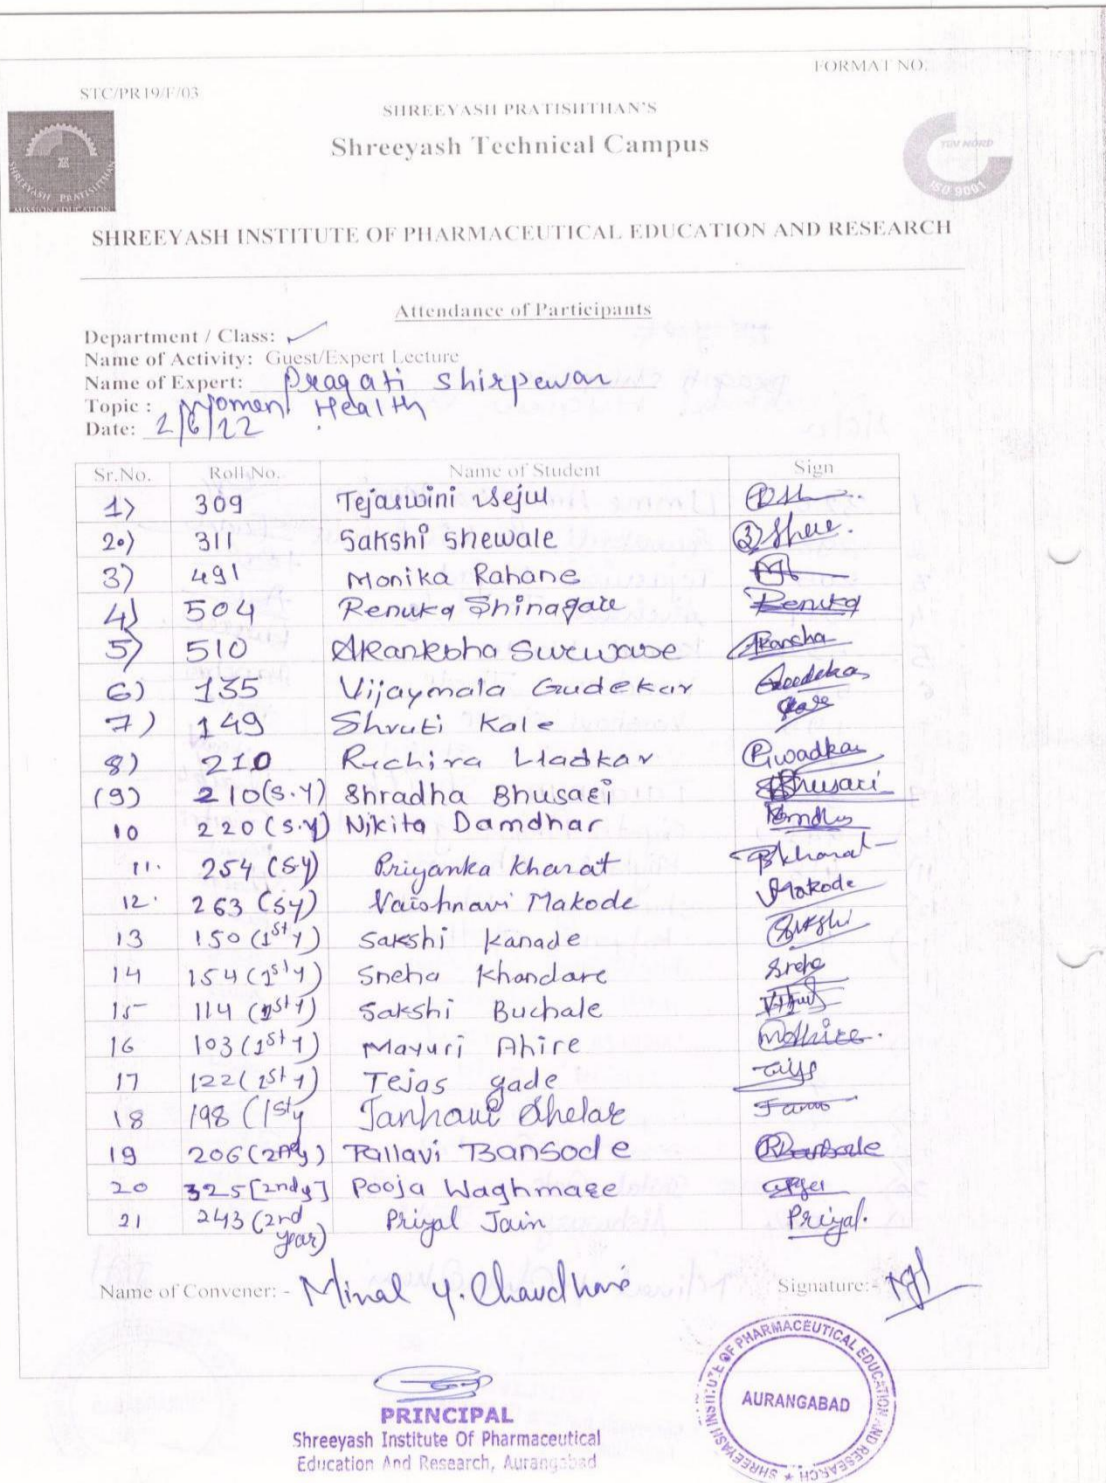 FORMAT NO.
STC/PR19/F/03
SHREEYASH PRATISHTHAN'S
Shreeyash Technical Campus
SHREEYASH PRATISHTHAN
MISSION EDUCATION
TUV NORD
ISO 9001
SHREEYASH INSTITUTE OF PHARMACEUTICAL EDUCATION AND RESEARCH
Attendance of Participants
Department / Class: ✓
Name of Activity: Guest/Expert Lecture
Name of Expert: Pragati Shirpewar
Topic: Women Health
Date: 2/6/22
Sr.No. Roll No. Name of Student Sign
1) 309 Tejaswini Sejul
2) 311 Sakshi Shewale
3) 491 Monika Rahane
4) 504 Renuka Shinagare Renuka
5) 510 Akanksha Surwase Akancha
6) 135 Vijaymala Gudekar Gudekar
7) 149 Shruti Kale
8) 210 Ruchira Wadkar RWadkar
(9) 210(S.Y) Shradha Bhusari Bhusari
10 220(S.Y) Nikita Damdhar
11. 254 (SY) Priyanka Kharat Pkharat
12. 263 (SY) Vaishnavi Makode Makode
13 150 (1st y) Sakshi Kanade Sakshi
14 154 (1st y) Sneha Khandare Sneha
15 114 (1st y) Sakshi Buchale
16 103 (1st y) Mayuri Ahire MAhire.
17 122 (1st y) Tejas gade
18 198 (1sty Janhavi Shelar
19 206 (2ndy) Pallavi Bansode PBansode
20 325 [2ndy] Pooja Waghmare
21 243 (2nd year) Priyal Jain Priyal.
Name of Convener: - Minal Y. Chaudhari Signature:-
PRINCIPAL
Shreeyash Institute Of Pharmaceutical
Education And Research, Aurangabad
SHREEYASH INSTITUTE OF PHARMACEUTICAL EDUCATION AND RESEARCH
AURANGABAD